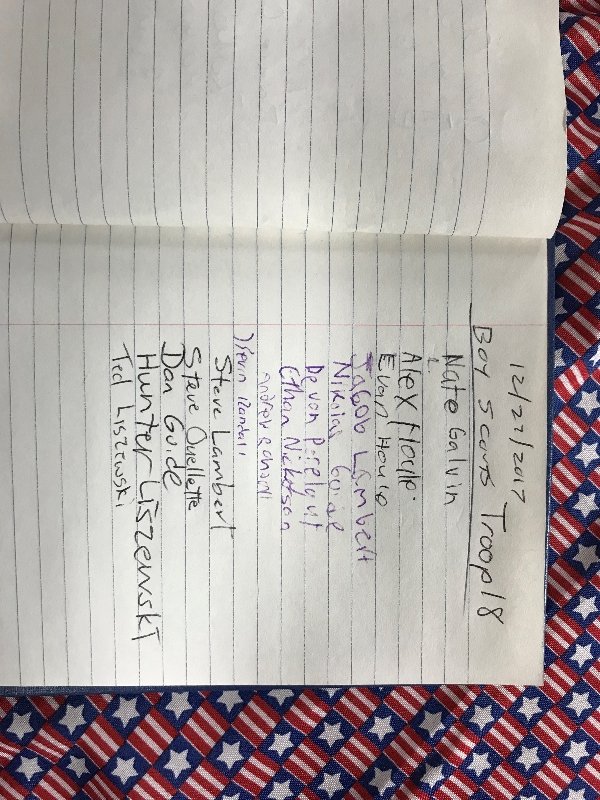 12/27/2017
Boy Scouts Troop 18
Nate Galvin
Alex Houle
Evan Houle
Jacob Lambert
Nikolas Guide
Devon
Ethan Nickerson
Randall
Steve Lambert
Steve Ouellette
Dan Guide
Hunter Liszewski
Ted Liszewski